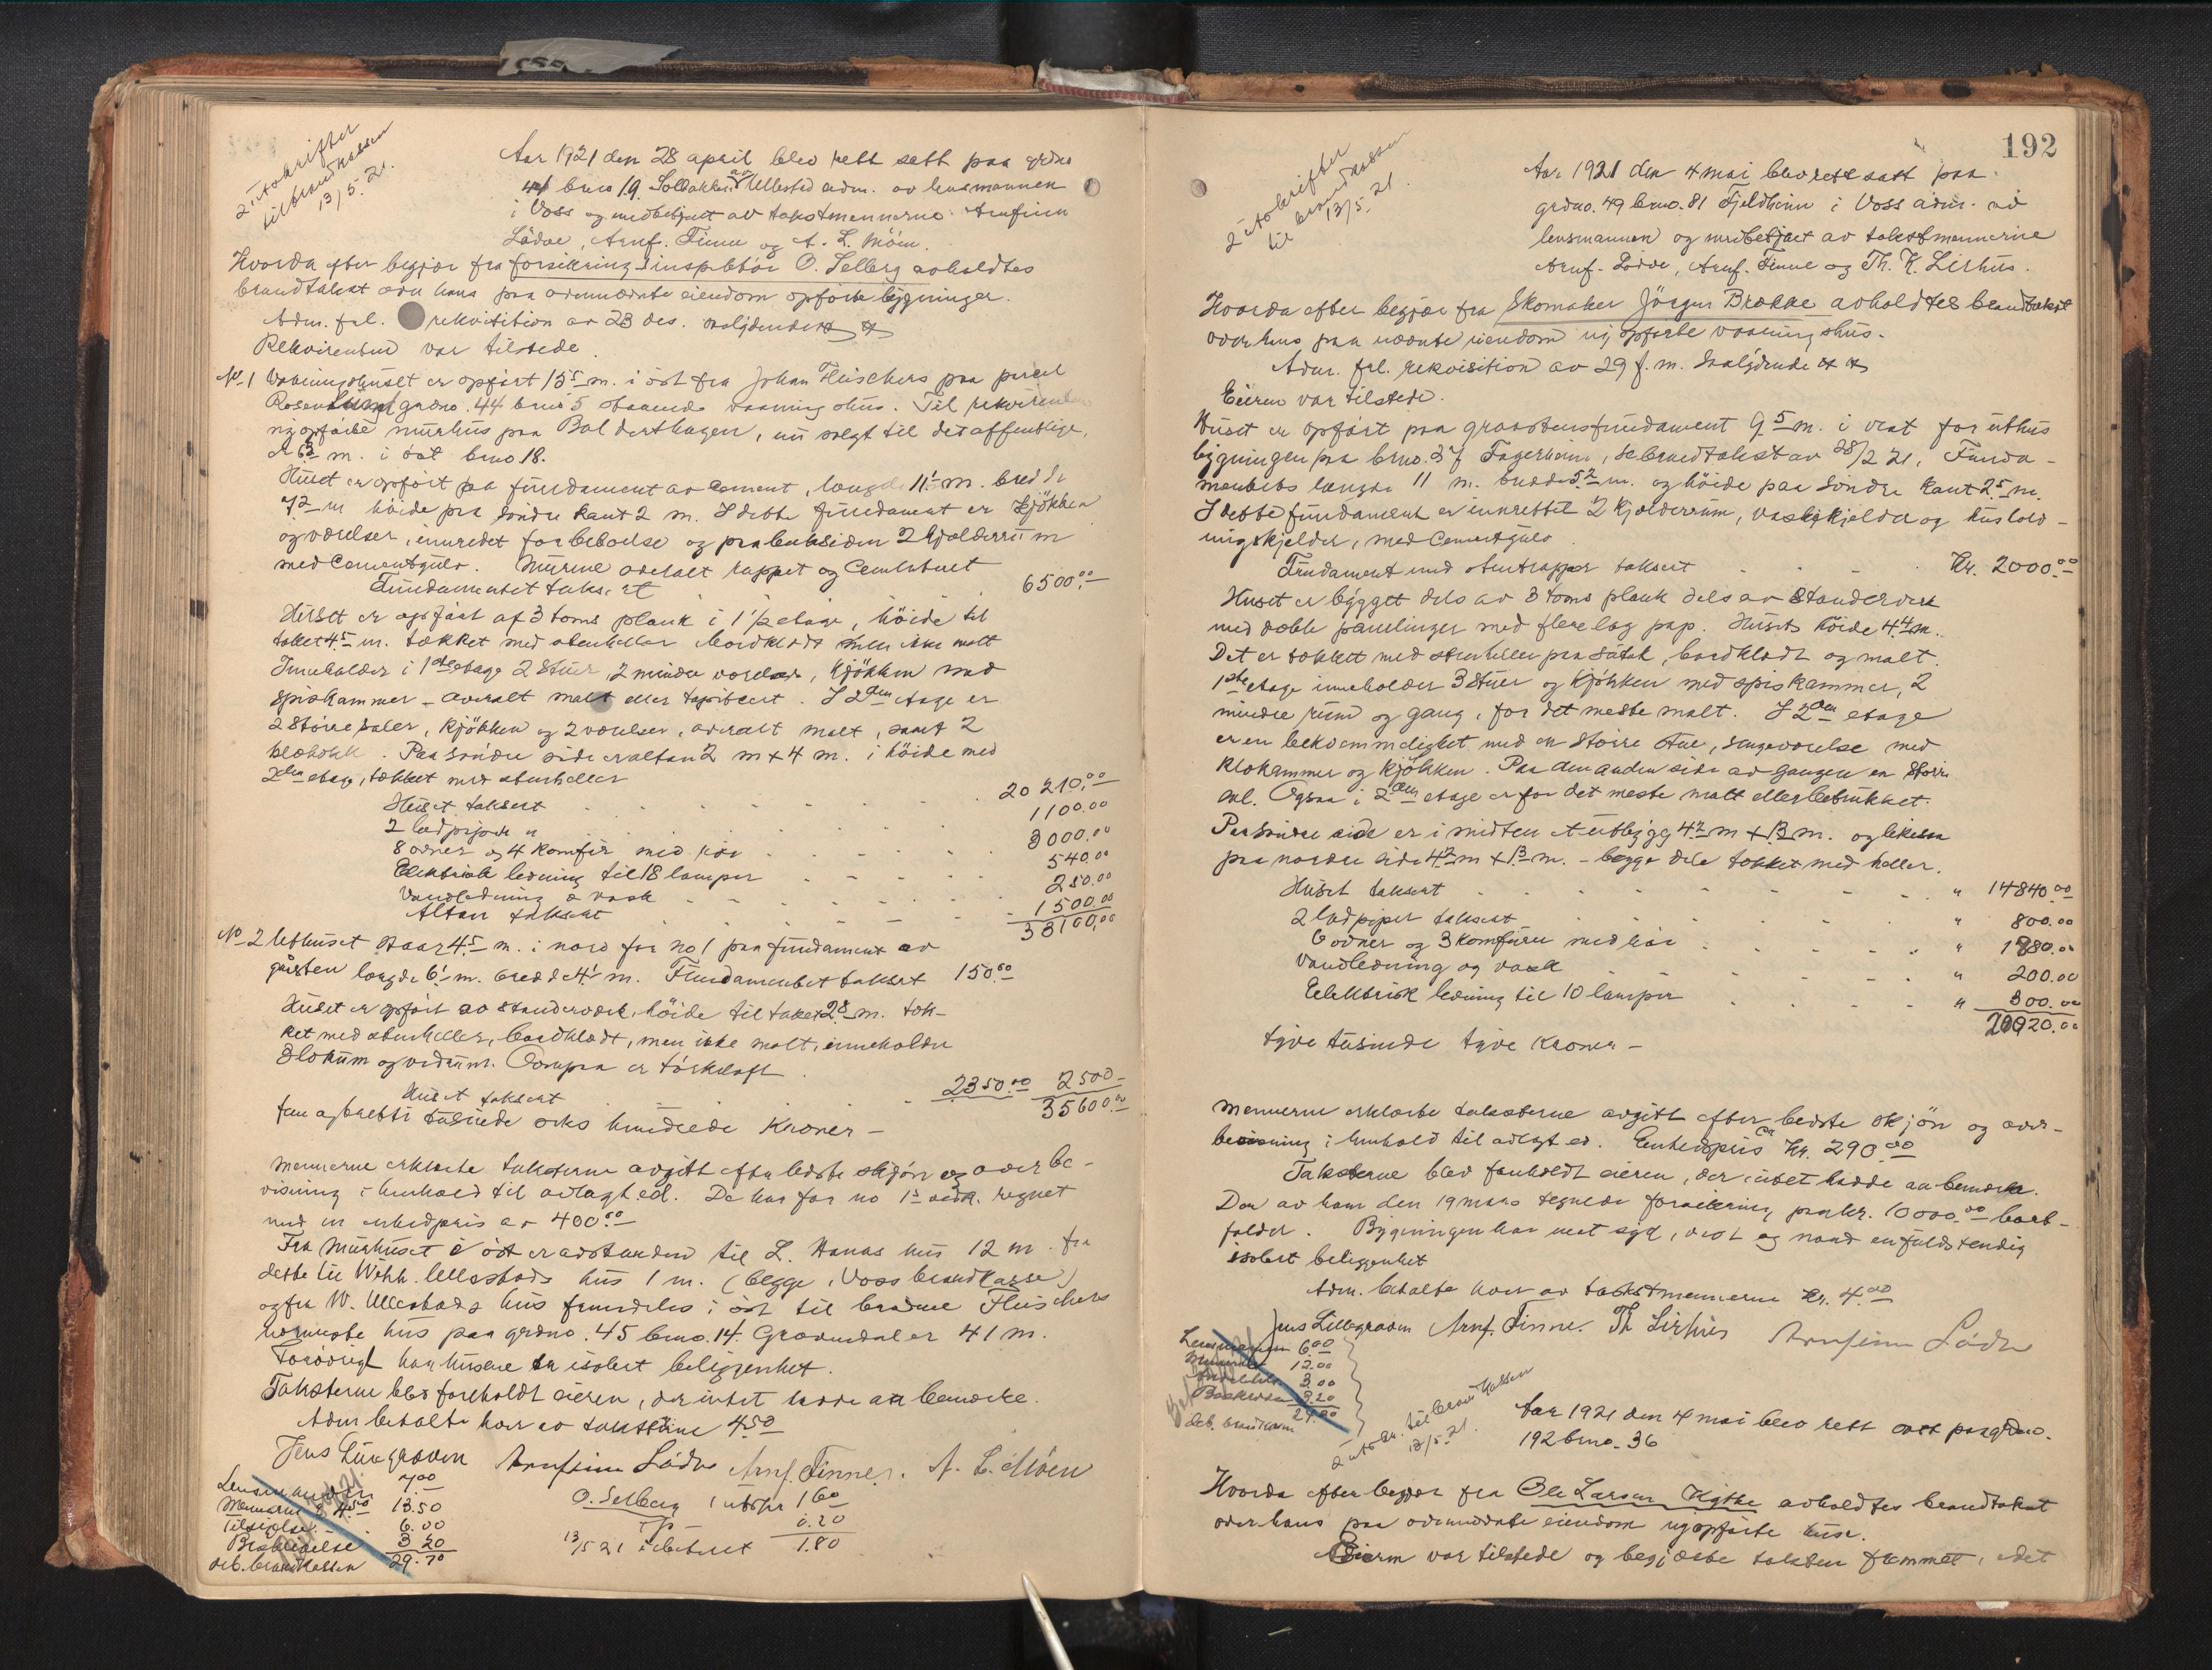 2 utskrifter
til brandkassen
13/5. 21.
Aar 1921 den 28 april blev rett satt paa grdno
44 bno 19. Solbakken av Ullestad adm. av lensmannen
i Voss og medbetjent av takstmennerne Arnfinn
Lødve, Arnf. Finne og A. L. Møen.
Hvorda efter begjær fra forsikringsinspektør O. Selberg avholdtes
brandtakst over hans paa ovennævnte eiendom opførte bygninger.
Adm. frl. rekvisition av 23 des. saalydende
Rekvirenten var tilstede.
No 1 Vaaningshuset er opført 15⁵ m. i øst fra Johan Fleischers paa parcel
Rosenlund grdno. 44 bno 5 staaende vaaningshus. Til rekvirenten
nyopførte murhus paa Baldershagen, nu solgt til det offentlige,
er 6³ m. i øst bno 18.
Huset er opført paa fundament av cement, længde 11¹ m. bredde
7² m høide paa søndre kant 2 m. I dette fundament er kjøkken
og værelser, innredet for beboelse og paa baksiden 2 kjølderrum
med cementgulv. Murene overalt rappet og cementeret
Fundamentet taksert 6500.00
Huset er opført af 3 toms plank i 1 1/2 etage, høide til
taket 4⁵ m. tækket med stenheller bordklædt men ikke malt
Inneholder i 1ste etage 2 stuer, 2 mindre værelser, kjøkken med
spiskammer - overalt malt eller tapetsert. I 2den etage er
2 større saler, kjøkken og 2 værelser, overalt malt, samt 2
klækott. Paa søndre side er altan 2 m x 4 m. i høide med
2den etage, tækket med stenheller
Huset taksert 20 210.00
2 ladpiper " 1100.00
8 ovner og 4 komfür med rør 3000.00
Elektrisk ledning til 18 lamper 540.00
Vandledning & vask 250.00
Altan taksert 1500.00
33100.00
No 2 Uthuset staar 4⁵ m. i nord for no 1 paa fundament av
graasten længde 6¹ m. bredde 4¹ m. Fundamentet taksert 150.00
Huset er opført av standerverk, høide til taket 2⁸ m. tæk-
ket med stenheller, bordklædt, men ikke malt, inneholder
3 lokum og vedrum. Ovenpaa er tørkeloft.
Huset taksert 2350.00 2500 -
35600.00
fem og tretti tusinde seks hundrede kroner -
Mennerne erklærte taksterne avgitt efter bedste skjøn og overbe-
visning i henhold til avlagt ed. De har for no 1's vedk. regnet
med en enhedpris av 400.00
Fra Murhuset i øst er avstanden til L. Hanas hus 12 m. fra
dette til Wilh. Ullestads hus 1 m. (begge i Voss brandkasse)
og fra W. Ullestads hus fremdeles i øst til brødrene Fleischers
nærmeste hus paa grdno. 45 bno. 14. Gravendal er 41 m.
Forøvrigt har husene en isolert beliggenhet.
Taksterne blev foreholdt eieren, der intet hadde at bemerke.
Adm betalte hver av takstmennene 4.50
Jens Lillegraven Arnfinn Lødve Arnf. Finne. A. L. Møen
Lensmannen 7.00
Mennerne à 4.50 13.50
Tilsigelse 6.00
Beskrivelse 3 20
deb. brandkassen 29.70
O. Selberg 1 utskr 1 60
0.20
13/5 21 debiteret 1.80
192
2 utskrifter
til brandkassen
13/5. 21.
Aar 1921 den 4 mai blev rett satt paa
grdno. 49 bno. 81 Fjeldheim i Voss adm. av
lensmannen og medbetjent av takstmennerne
Arnf. Lødve, Arnf. Finne og Th. K. Lirhus.
Hvorda efter begjær fra Skomaker Jørgen Brække avholdtes brandtakst
over hans paa nævnte eiendom nyopførte vaaningshus.
Adm. frl. rekvisition av 29 f. m. saalydende
Eieren var tilstede.
Huset er opført paa graastensfundament 9⁵ m. i vest for uthus
bygningen paa bno. 37 Fagerheim, se brandtakst av 28/2 21. Funda-
mentets længde 11 m. bredde 5² m. og høide paa søndre kant 2⁵ m.
I dette fundament er innrettet 2 kjølderrum, vaskekjelder og hushold-
ningskjelder, med cementgulv.
Fundament med stentrapper taksert Kr. 2000.00
Huset er bygget dels av 3 toms plank dels av standerverk
med doble panelinger med flere lag pap. Husets høide 4⁴ m.
Det er tækket med stenheller paa sutak, bordklædt og malt.
1ste etage inneholder 3 stuer og kjøkken med spiskammer, 2
mindre rum og gang, for det meste malt. I 2den etage
er en bekvemmelighet med en større stue, sengeværelse med
klækammer og kjøkken. Paa den anden side av gangen en større
sal. Ogsaa i 2den etage er for det meste malt eller betrukket.
Paa søndre side er i midten et utbygg 4² m x 1³ m. og likesaa
paa nordre side 4² m x 1³ m. - begge dele tækket med heller.
Huset taksert " 14840.00
2 ladpiper taksert " 800.00
6 ovner og 3 komfurer med rør " 1880.00
Vandledning og vask " 200.00
Elektrisk ledning til 10 lamper " 300.00
20020.00
tyve tusinde tyve kroner -
Mennerne erklærte taksterne avgitt efter bedste skjøn og over-
bevisning i henhold til avlagt ed. Enhedpris ca Kr. 290.00
Taksterne blev foreholdt eieren, der intet hadde at bemerke.
Den av ham den 19 mars tegnede forsikring paa kr. 10000.00 bort-
falder. Bygningen har mot syd, vest og nord en fuldstendig
isolert beliggenhet
Adm. betalte hver av takstmennerne Kr. 4.00
Jens Lillegraven Arnf. Finne. Th Lirhus Arnfinn Lødve
Lensmannen 6.00
Mennerne 12.00
3.00
Beskrivelse 3.20
deb. brandkassen 24.20
2 utskr. til brandkassen
13/5. 21.
Aar 1921 den 4 mai blev rett satt paa grdno.
192 bno. 36
Hvorda efter begjær fra Ole Larsen Kytte avholdtes brandtakst
over hans paa ovennævnte eiendom nyopførte huse.
Eieren var tilstede og begjærte taksten fremmet, idet